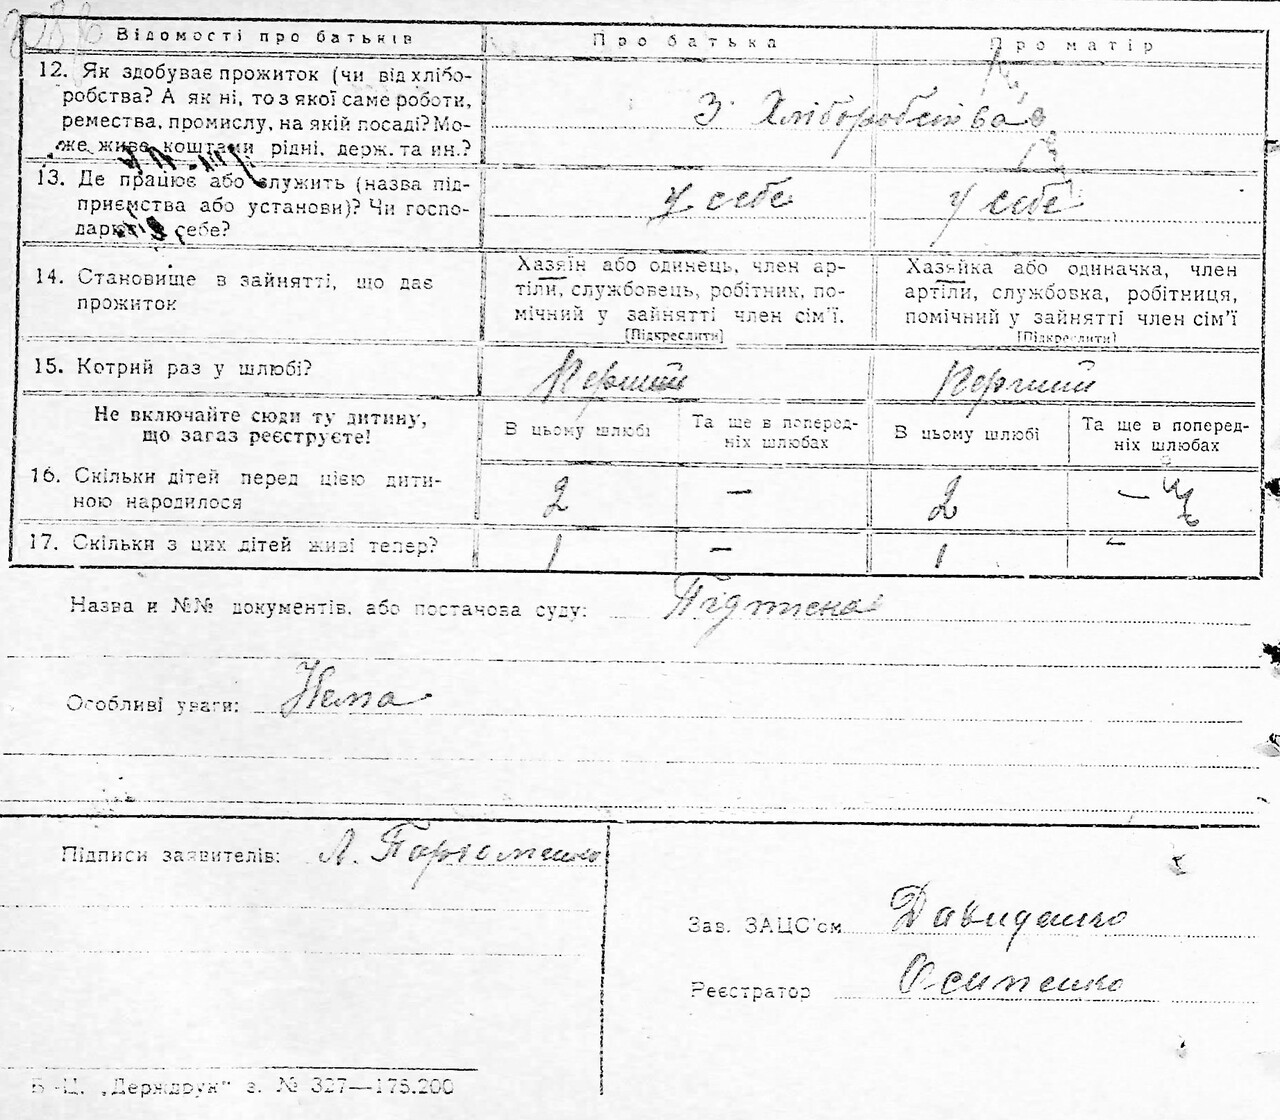 Відомості про батьків
Про батька
Про матір
12. Як здобуває прожиток (чи від хлібо-
робства? А як ні, то з якої саме роботи,
ремества, промислу, на якій посаді? Мо-
же живе коштами рідні, держ. та ин.?
З Хліборобства
13. Де працює або служить (назва під-
приємства або установи)? Чи госпо-
дарює у себе?
у себе
у себе
14. Становище в зайнятті, що дає
прожиток
Хазяін або одинець, член ар-
тіли, службовець, робітник, по-
мічний у зайнятті член сім'ї.
(Підкреслити)
Хазяйка або одиначка, член
артіли, службовка, робітниця,
помічний у зайнятті член сім'ї
(Підкреслити)
15. Котрий раз у шлюбі?
Перший
Перший
Не включайте сюди ту дитину,
що зараз реєструєте!
В цьому шлюбі
Та ще в поперед-
ніх шлюбах
В цьому шлюбі
Та ще в поперед-
ніх шлюбах
16. Скільки дітей перед цією дити-
ною народилося
2
–
2
–
17. Скільки з цих дітей живі тепер?
1
–
1
–
Назва и №№ документів, або постанова суду:
Особливі уваги: Нема
Підписи заявителів: А. Пархоменко
Зав. ЗАЦС'ом Давиденко
Реєстратор Осипенко
Б.-Ц. „Держдрук“ з. № 327—175.200